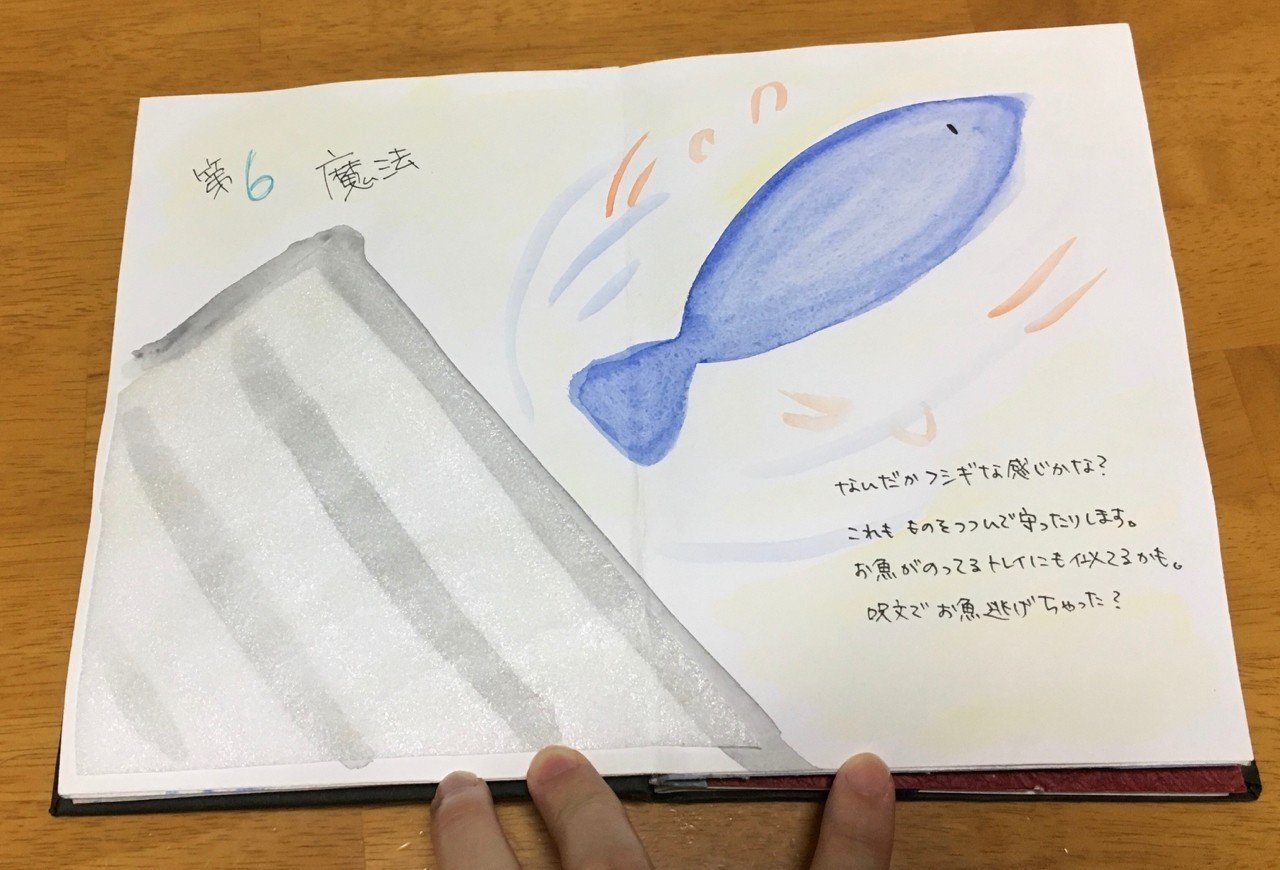 第6 魔法
なんだかフシギな感じかな?
これも ものをつつんで守ったりします。
お魚がのってるトレイにも似てるかも。
呪文でお魚逃げちゃった?